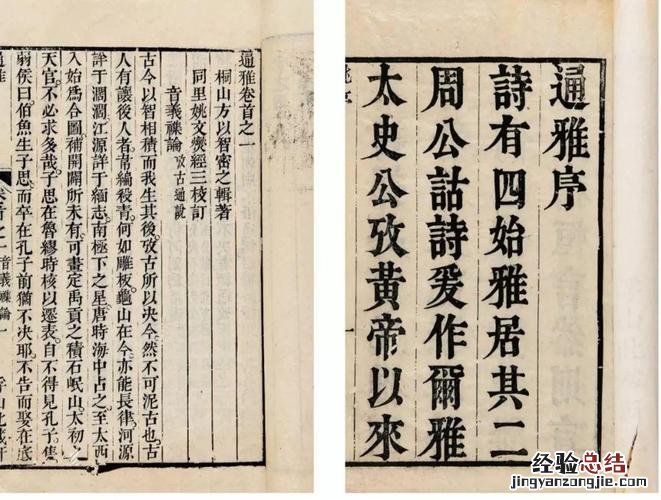 通雅序
詩有四始雅居其二
周公詁詩爰作爾雅
太史公攷黄帝以來
通雅卷首之一
桐山方以智密之輯著
同里姚文燮經三校訂
音義襍論 攷古通說
古今以智相積而我生其後攷古所以决今然不可泥古也古
人有讓後人者韋編殺青何如雕板龜山在今亦能長律河源
詳于濶濶江源詳于緬志南極下之星唐時海中占之至太西
入始為合圖補開闢所未有可畫定禹貢之積石岷山太初
天官不必求多哉子思在魯繆時核以遷表自不得見孔子集
弱侯曰伯魚生子思而卒在孔子前猶不决耶不告而娶在底
通雅
音義襍論
一
经验总结
jingyanzongjie.com